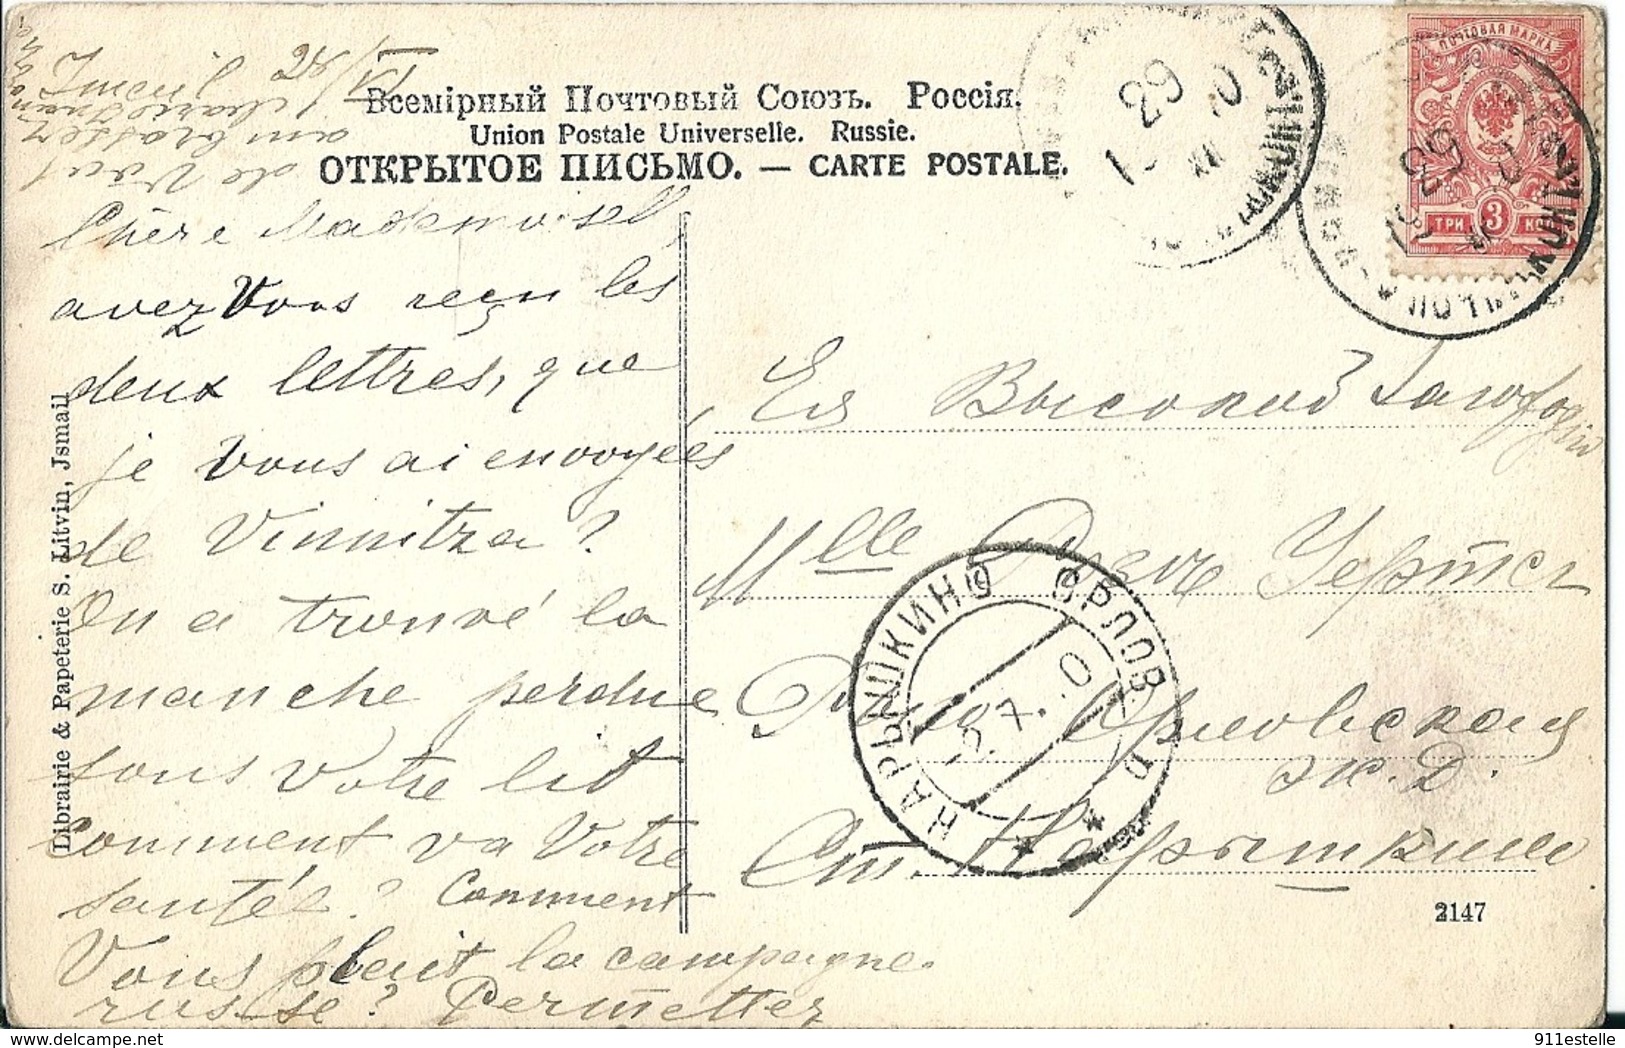 Всемірный Почтовый Союзъ. Россія.
Union Postale Universelle. Russie.
ОТКРЫТОЕ ПИСЬМО. — CARTE POSTALE.
ПОЧТОВАЯ МАРКА
ТРИ 3 КОП
29
Chère Mademoisell,
avez Vous reçu les
deux lettres, que
je vous ai envoyées
de Vinnitza?
On a trouvé la
manche perdue
sous Votre lit
Comment va Votre
santée? Comment
Vous plait la campagne
russe? Permettez
de Vous
ambrasser
Ея Высоко
Mlle
Орловская
ж. Д.
Ст. Нарышкино
НАРЫШКИНО ОРЛОВ. П.
27. 0
Librairie & Papeterie S. Litvin, Jsmail
2147
911estelle